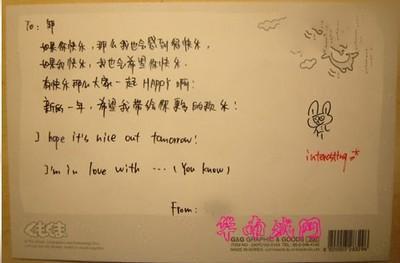 To: 郭
如果你快乐，那么我也会感到很快乐，
如果我快乐，我也会希望你快乐，
有快乐那么大家一起 HAPPY 啊!
新的一年，希望我带给你更多的欢乐!
I hope it's nice out tomorrow!
I'm in love with ... (You know)
interesting
From:
くまくま
华南城网
G&G GRAPHIC & GOODS
MADE IN KOREA